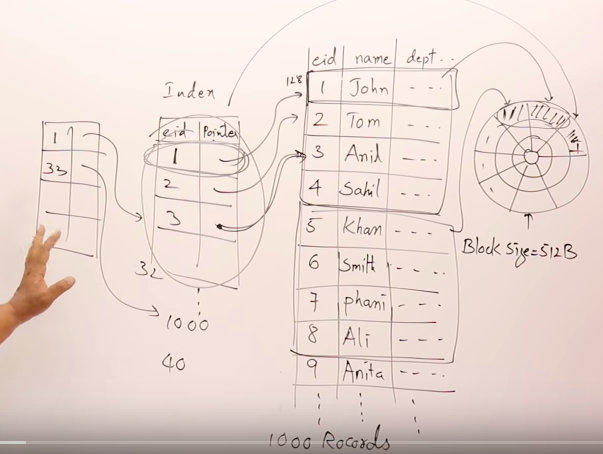 Index
eid Pointer
1
2
3
32
1000
40
1
33
eid name dept..
128
1 John - - -
2 Tom - - -
3 Anil - - -
4 Sahil - - -
5 Khan - - -
6 Smith - - -
7 phani - - -
8 Ali - - -
9 Anita - - -
1000 Rocords
Block Size=512B